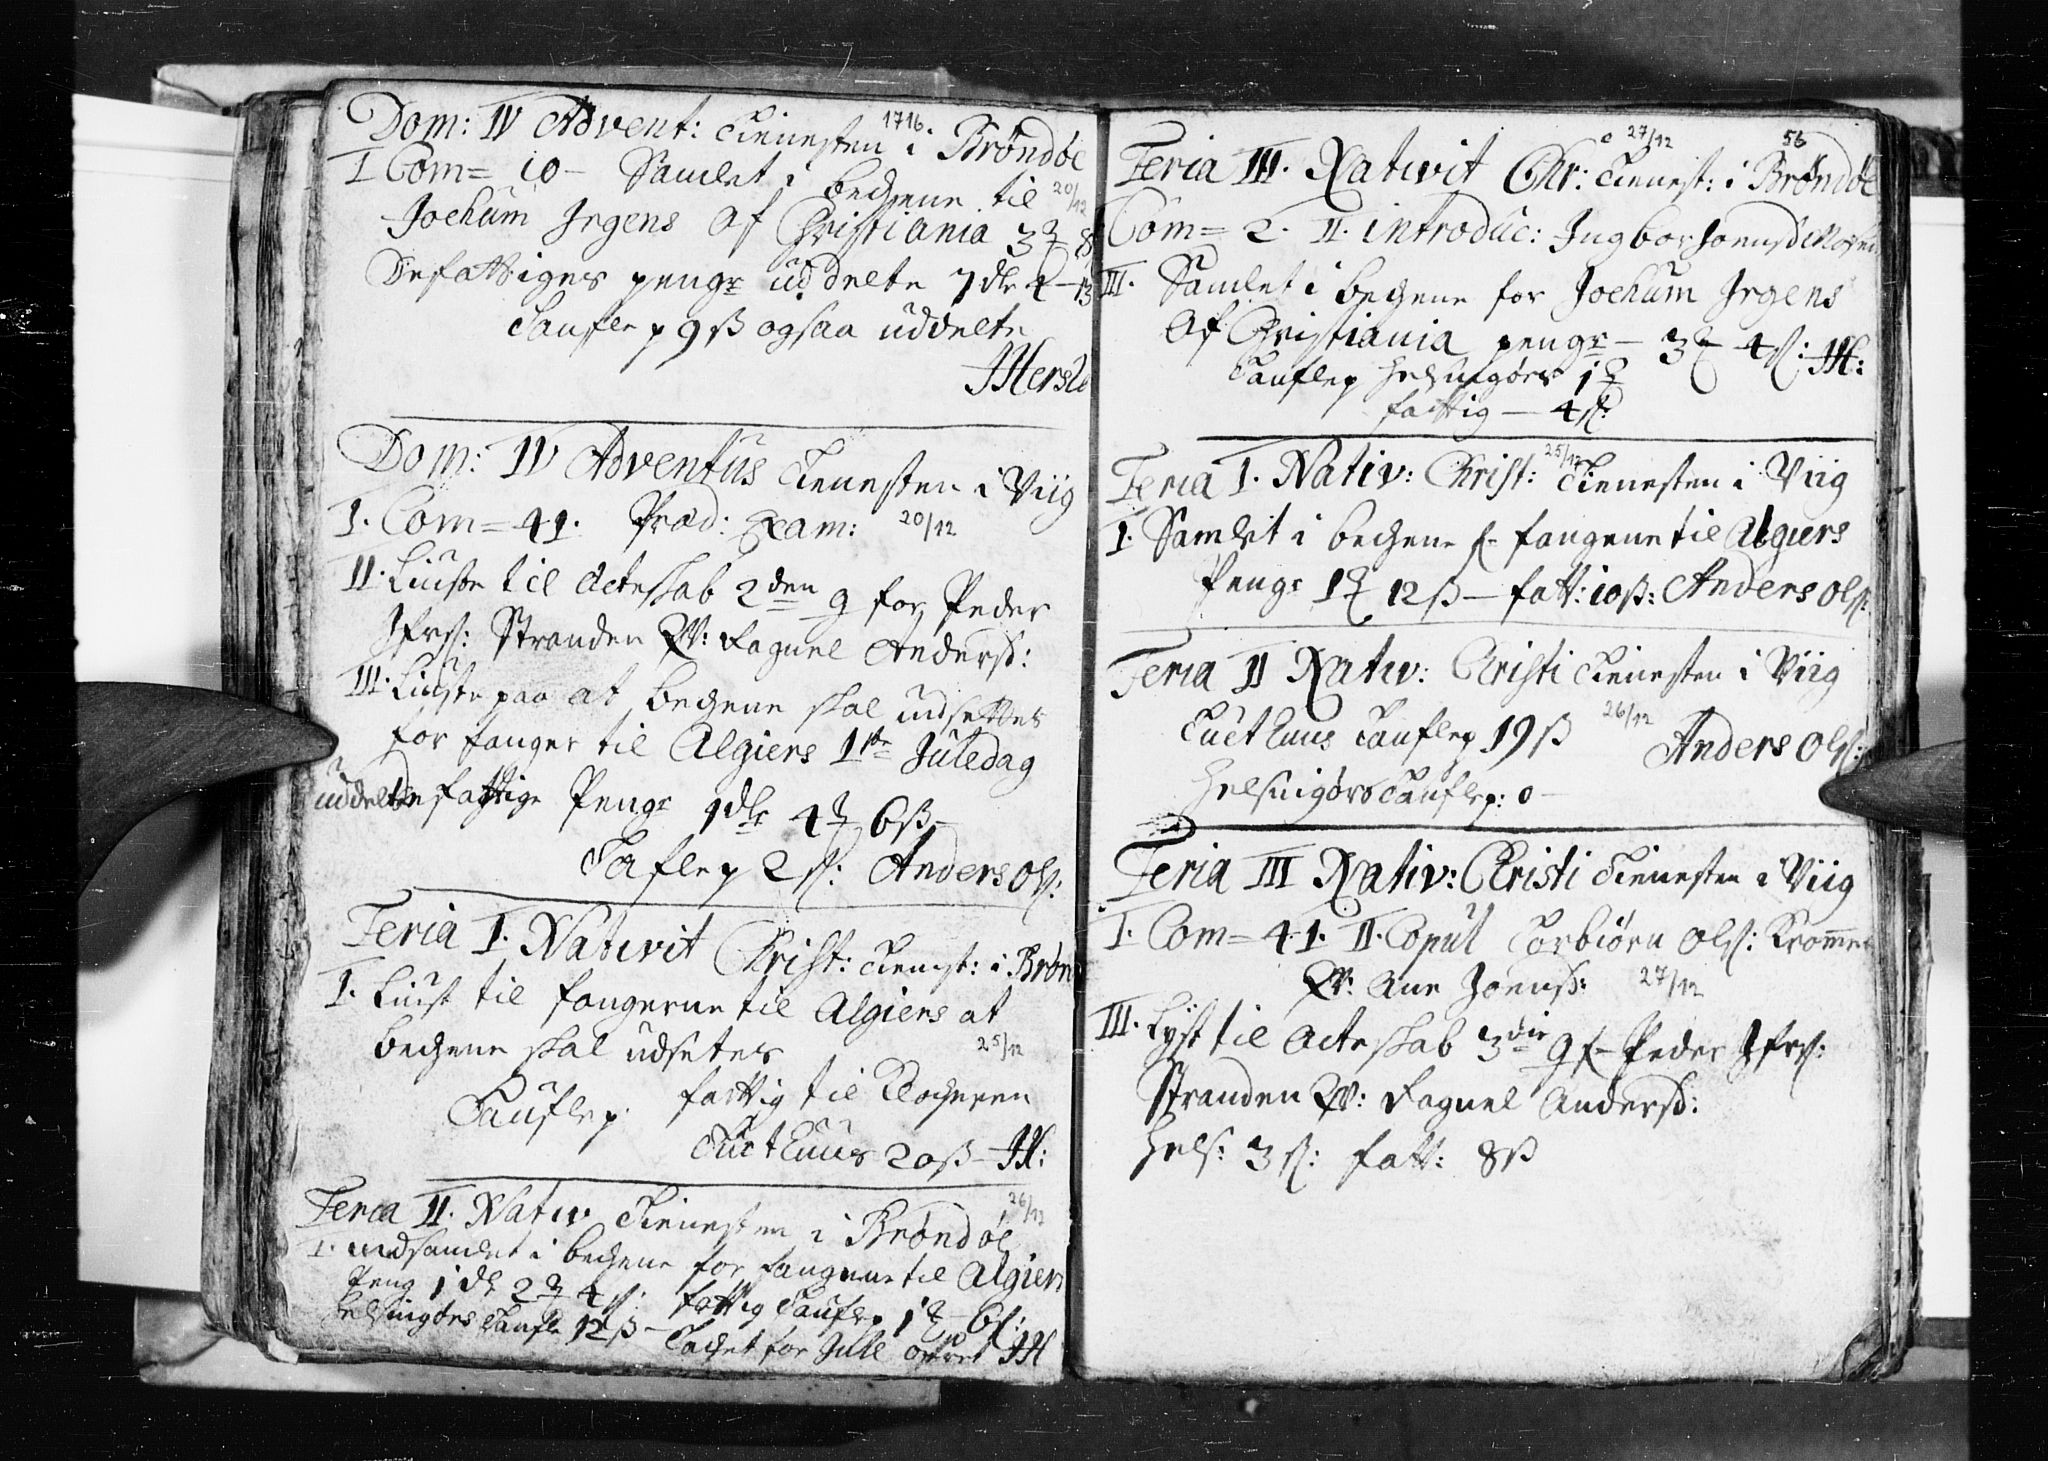 Dom: IV Advent: Tienesten i Brøndøe
1716.
I Com = 10 – Samlet i bechene til
20/12
Jochum Irgens af Christiania 3 8
De fattiges penge uddelte 7 dlr 4 – 13
Taufle p 9 ß ogsaa uddelte
JHersle
Dom: IV Adventus Tienesten i Viig
I. Com = 41. Præd: Exam:
20/12
II. Liuste til Ecteskab 2den g for Peder
Ifrs: Stranden Qv: Ragnel Andersd:
III. Liuste paa at bechene skal udsettes
for fanger til Algiers 1ste Juledag
uddelte fattige Penge 1 dlr 4 6 ß –
Tafle p 2 s: Anders Ols:
Feria I. Nativit Christ: Tienest: i Brøn
I. Liust til fangerne til Algiers at
bechene skal udsetes
25/12
Taufle p. fattig til Klocheren
Tucthuus 20 ß – JH:
Feria II. Nativ Tienesten i Brøndøe
26/12
I. indsamlet i bechene for fangene til Algiers
Peng 1 dl 2 4 s: fattig Taufle p 1 – 6 s:
Helsingørs Taufle 12 ß –
Tachet for Jule offret JH
56
27/12
Feria III. Nativit Chr: Tienest: i Brøndøe
Com = 2. II. introduc: Ingbor Joensd
III. Samlet i bechene for Jochum Irgens
af Christiania penge – 3 4 s: JH:
Taufle p Helsingørs 1
fattig – 4 s:
Feria I. Nativ: Christ: Tienesten i Viig
25/12
I. Samlet i bechene f– fangene til Algiers
Penge 1 12 ß – fatt: 10 ß: Anders Ols:
Feria II Nativ: Christi Tienesten i Viig
26/12
Tucthuus Taufle p 19 ß Anders Ols:
Helsingørs Taufle p: 0 –
Feria III Nativ: Christi Tienesten i Viig
I. Com = 41. II. Copul Torbiørn Ols: Kromme
Qv: Ane Joensd:
27/12
III. Lyst til Ecteskab 3die g f– Peder Ifrs:
Stranden Qv: Ragnel Andersd:
Hels: 3 s: fatt: 8 ß